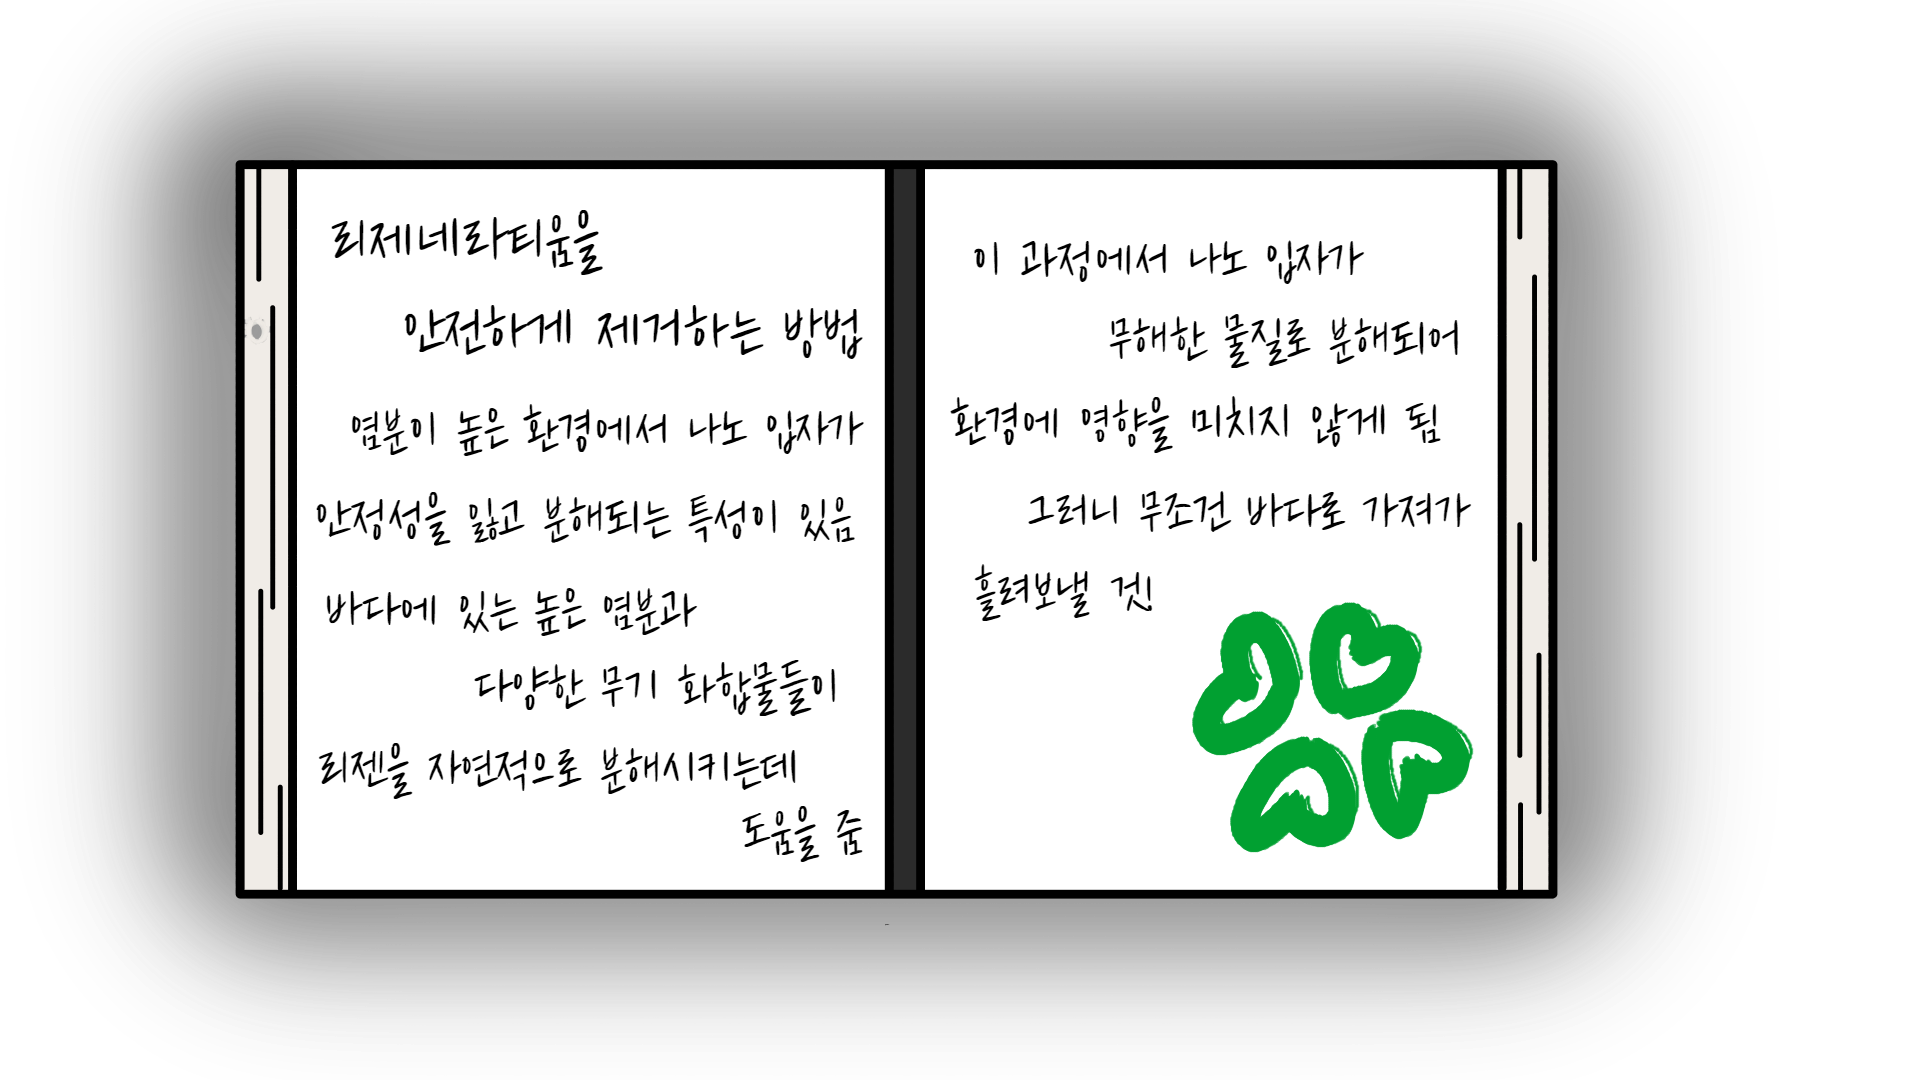 리제네라티움을
안전하게 제거하는 방법
염분이 높은 환경에서 나노 입자가
안정성을 잃고 분해되는 특성이 있음
바다에 있는 높은 염분과
다양한 무기 화합물들이
리젠을 자연적으로 분해시키는데
도움을 줌
이 과정에서 나노 입자가
무해한 물질로 분해되어
환경에 영향을 미치지 않게 됨
그러니 무조건 바다로 가져가
흘려보낼 것!